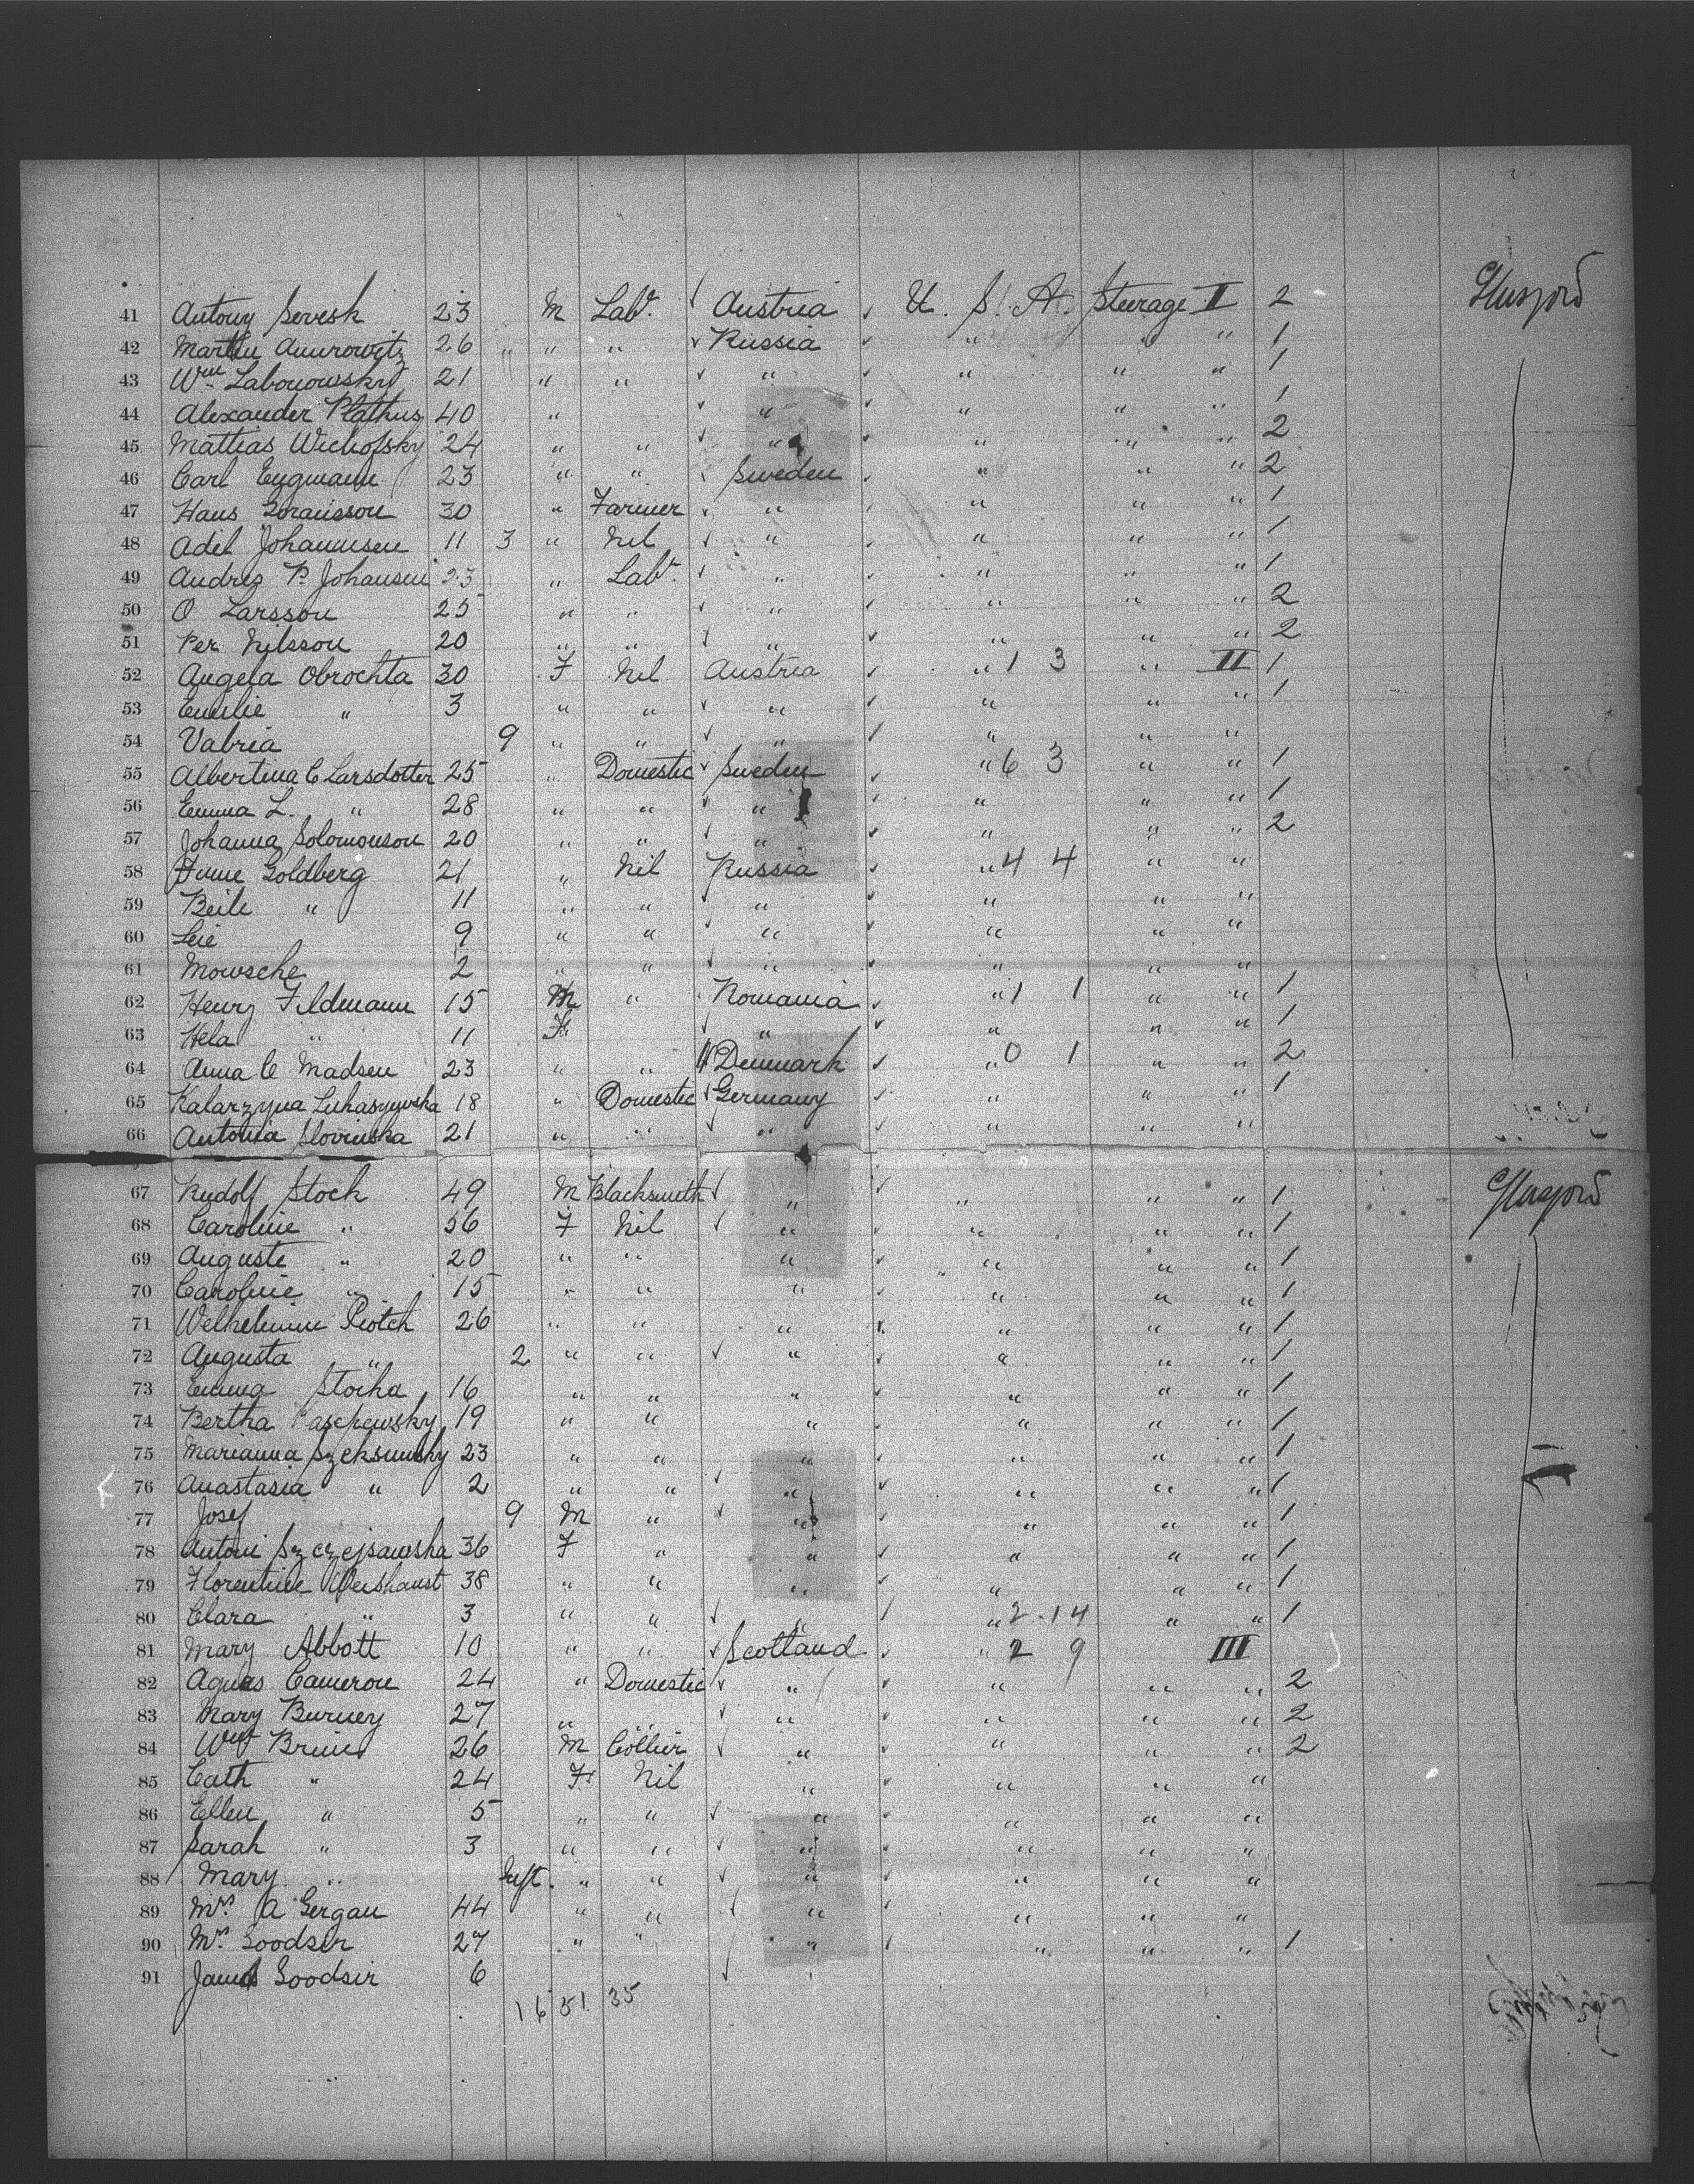 41 Antony Sevesk 23 M Labr. Austria U. S. A. Steerage II 2 Glasgow
42 Martin Amrowitz 26 " " " Russia " " " 1
43 Wm Labonowsky 21 " " " " " " 1
44 Alexander Plathus 40 " " " " " 1
45 Mattias Wichofsky 24 " " " " " " 2
46 Carl Eygmann 23 " " Sweden " " " 2
47 Hans Goransson 30 " Farmer " " " " 1
48 Adel Johannsen 11 3 " Nil " " " " 1
49 Andres P. Johansen 23 " Labr. " " " " 1
50 O Larsson 25 " " " " " " 2
51 Per Nilsson 20 " " " " " " 2
52 Angela Obrochta 30 F Nil Austria " 1 3 " II 1
53 Emilie " 3 " " " " " " 1
54 Valria 9 " " " " " "
55 Albertina C Larsdotter 25 " Domestic Sweden " 6 3 " " 1
56 Emma L. " 28 " " " " " " 1
57 Johanna Solomonson 20 " " " " " " 2
58 Goldberg 21 " Nil Russia " 4 4 " "
59 Beile " 11 " " " " " "
60 Leie 9 " " " " " "
61 Mowsche 2 " " " " " "
62 Henry Fildmann 15 M " Romania " 1 1 " " 1
63 Hela " 11 F " " " " 1
64 Anna C Madsen 23 " " Denmark " 0 1 " " 2
65 Katarzyna 18 " Domestic Germany " " " 1
66 Antonia Slovinska 21 " " " " " "
67 Rudolf Stock 49 M Blacksmith " " " " 1 Glasgow
68 Caroline " 56 F Nil " " " " 1
69 Auguste " 20 " " " " " " 1
70 Caroline " 15 " " " " " " 1
71 Welhelmine Piotch 26 " " " " " " 1
72 Augusta " 2 " " " " " " 1
73 Emma Stocha 16 " " " " " " 1
74 Bertha 19 " " " " " " 1
75 Marianna 23 " " " " " " 1
76 Anastasia " 2 " " " " " " 1
77 Josef 9 M " " " " " 1
78 Antoni 36 F " " " " " 1
79 Florentine 38 " " " " " " 1
80 Clara " 3 " " " " 2 14 " " 1
81 Mary Abbott 10 " " Scotland " 2 9 III
82 Agnes Cameron 24 " Domestic " " " " 2
83 Mary Burney 27 " " " " " " 2
84 Wm 26 M Collier " " " " 2
85 Cath " 24 F Nil " " " "
86 Ellen " 5 " " " " " "
87 Sarah " 3 " " " " " "
88 Mary " Inft. " " " " " "
89 Mrs. A Gergan 44 " " " " " "
90 Mrs. Goodsir 27 " " " " " " 1
91 James Goodsir 6
16 51 35